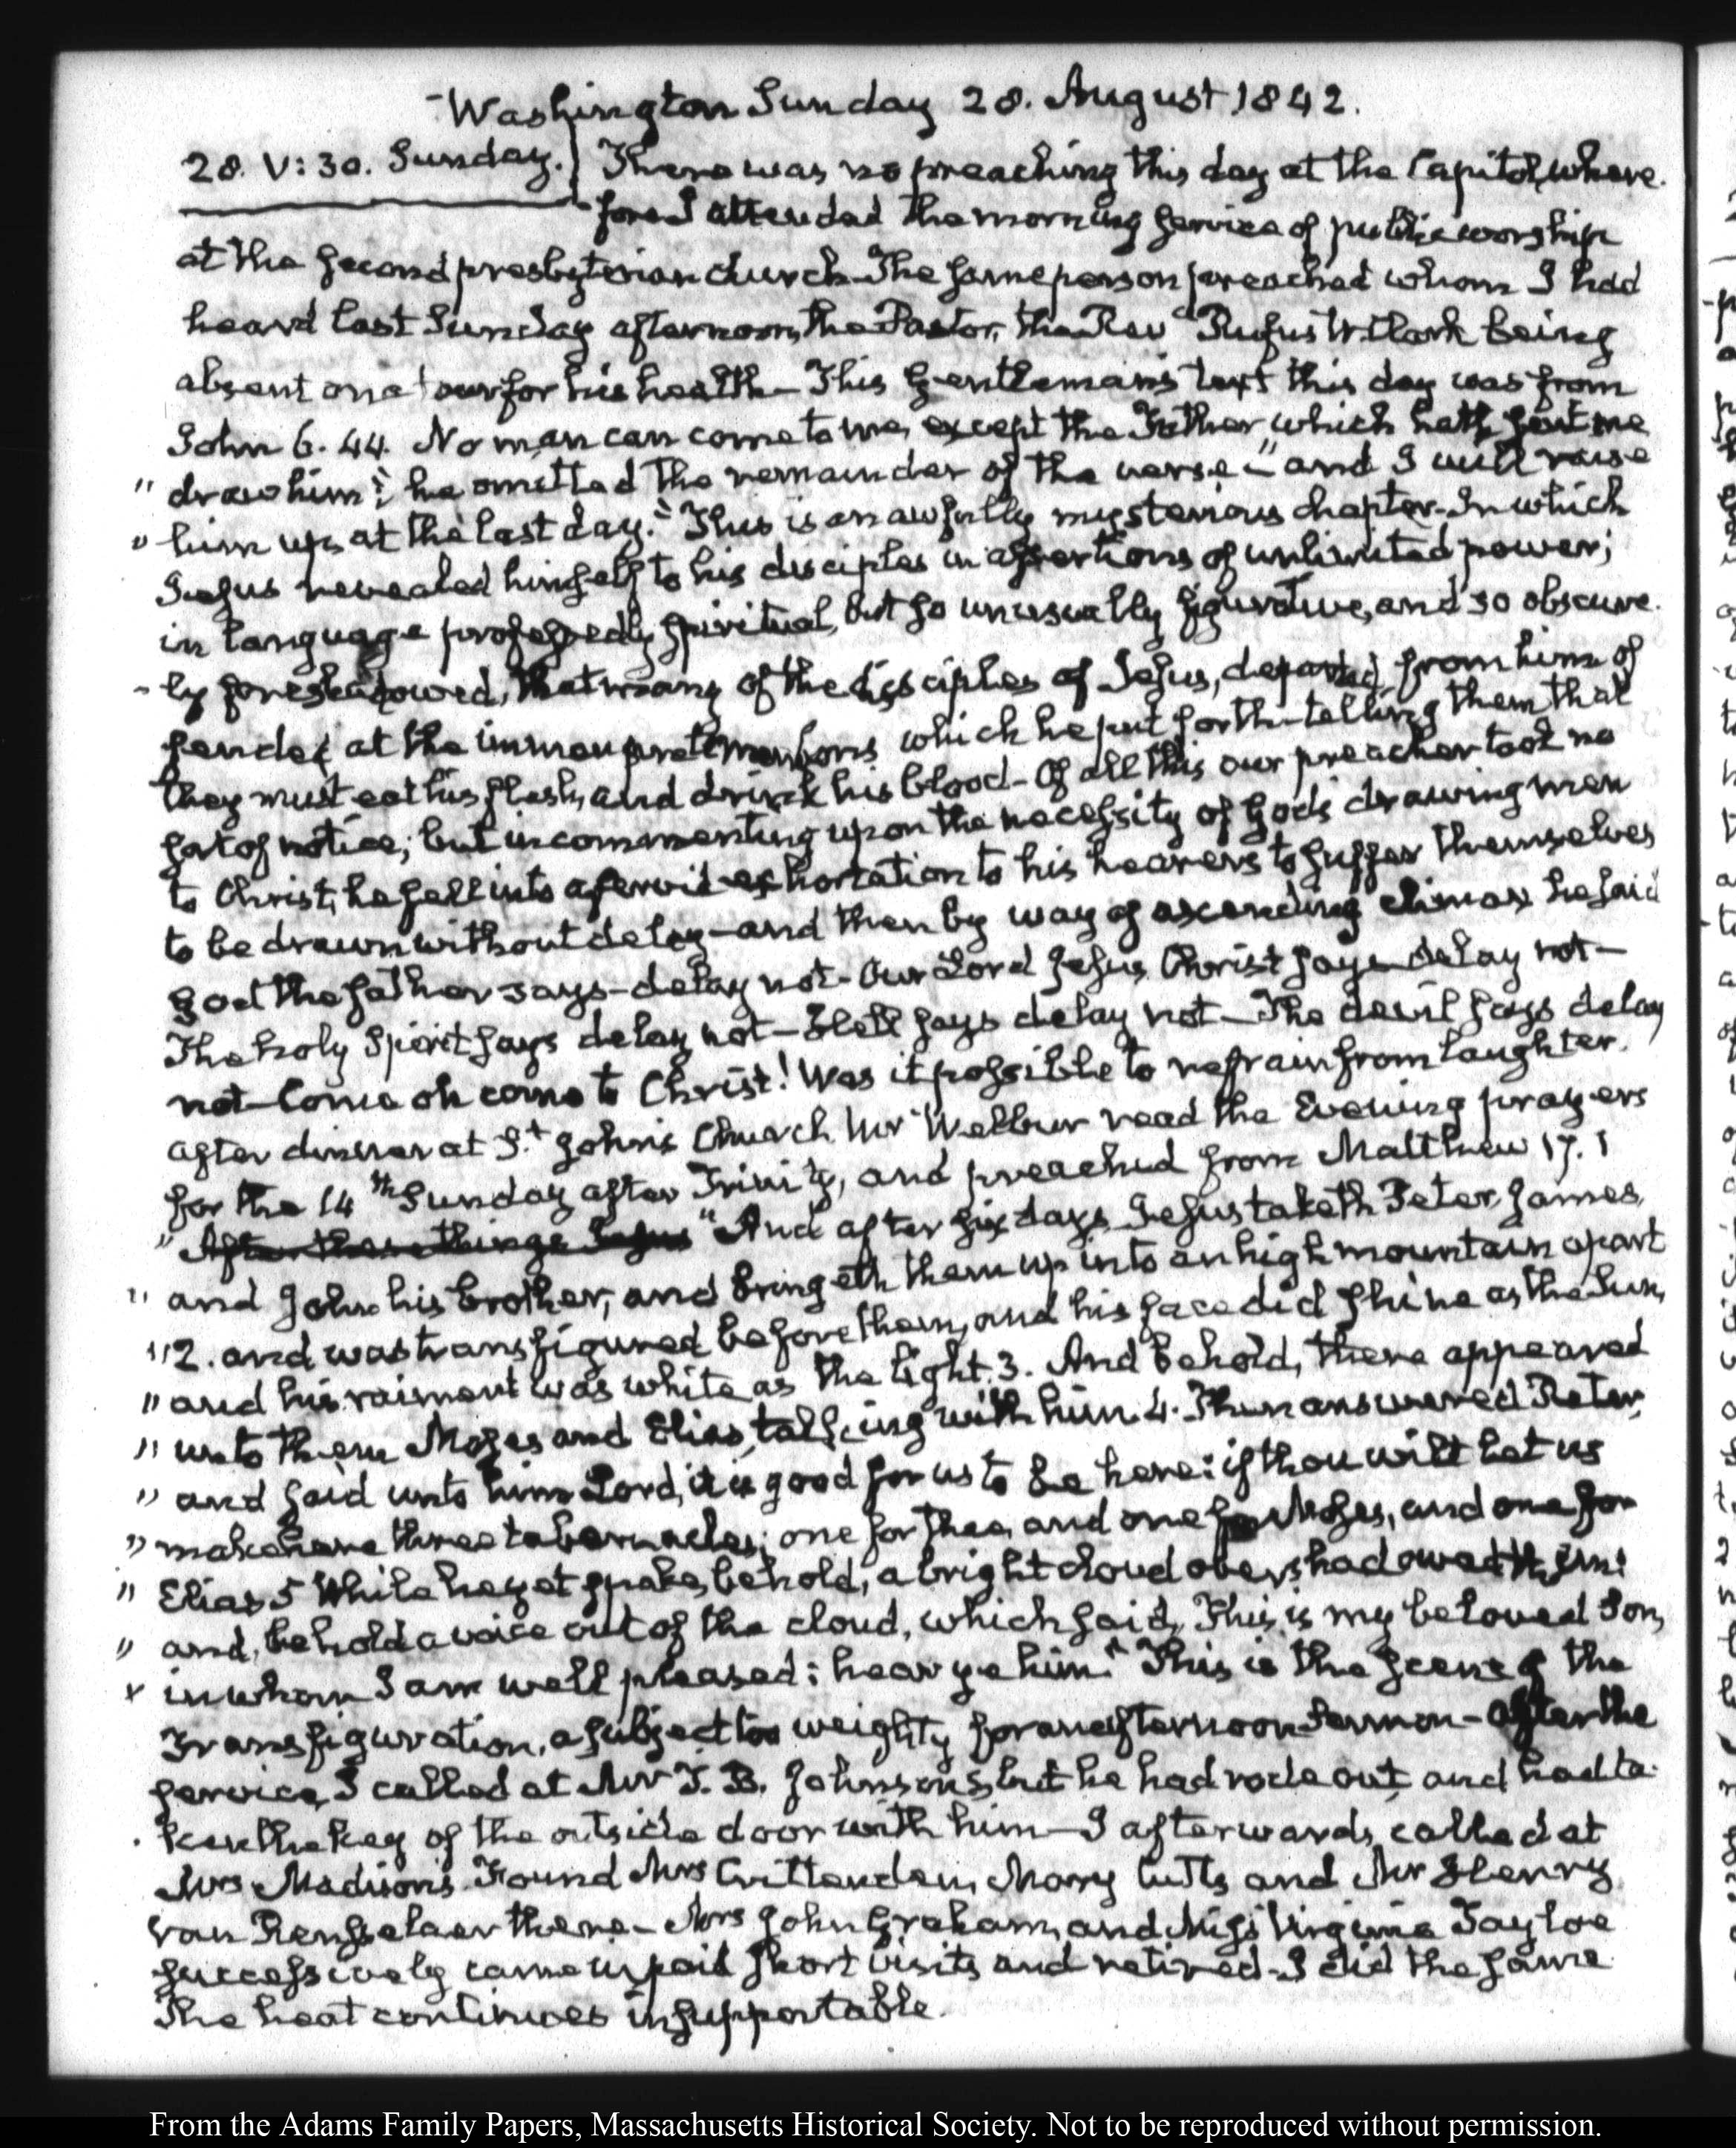 Washington Sunday 28. August 1842.
28. V: 30. Sunday. There was no preaching this day at the Capitol, where-
fore I attended the morning service of public worship
at the second presbyterian church. The same person preached whom I had
heard last Sunday afternoon, the Pastor, the Revd Rufus W. Clark being
absent on a tour for his health — This Gentleman's text this day was from
John 6. 44. No man can come to me, except the Father which hath sent me
" draw him"; he omitted the remainder of the verse — "and I will raise
" him up at the last day." This is an awfully mysterious chapter. In which
Jesus revealed himself to his disciples in assertions of unlimited power;
in language professedly spiritual, but so unusually figurative, and so obscure-
-ly foreshadowed, that many of the disciples of Jesus, departed from him of
fended at the which he put forth — telling them that
they must eat his flesh, and drink his blood — Of all this our preacher took no
sort of notice; but in commenting upon the necessity of Gods drawing men
to Christ, he fell into a fervid exhortation to his hearers to suffer themselves
to be drawn without delay — and then by way of ascending climax he said
God the father says — delay not — Our Lord Jesus Christ says delay not —
The holy Spirit says delay not — Hell says delay not — The devil says delay
not — Come oh come to Christ! Was it possible to refrain from laughter.
after dinner at St. John's Church Mr Wilbur read the Evening prayers
for the 14th Sunday after Trinity, and preached from Matthew 17. 1
" After these things Jesus "And after six days Jesus taketh Peter, James,
" and John his brother, and bringeth them up into an high mountain apart
" 2. and was transfigured before them, and his face did shine as the Sun,
" and his raiment was white as the light. 3. And behold, there appeared
" unto them Moses and Elias, talking with him. 4. Then answered Peter,
" and said unto him Lord, it is good for us to be here: if thou wilt let us
" make here three tabernacles; one for thee, and one for Moses, and one for
" Elias 5 While he yet spake, behold, a bright cloud overshadowed them:
" and, behold a voice out of the cloud, which said, This is my beloved Son,
" in whom I am well pleased: hear ye him." This is the scene of the
Transfiguration, a subject too weighty for an afternoon Sermon — After the
service, I called at Mr T. B. Johnson's, but he had rode out, and had ta-
ken the key of the outside door with him — I afterwards called at
Mrs Madison's. Found Mrs Crittenden, Mary Cutts and Mr Henry
van Rensselaer there — Mrs John Graham, and Miss Virginia Tayloe
successively came in, paid short visits and retired — I did the same.
The heat continues insupportable.
From the Adams Family Papers, Massachusetts Historical Society. Not to be reproduced without permission.